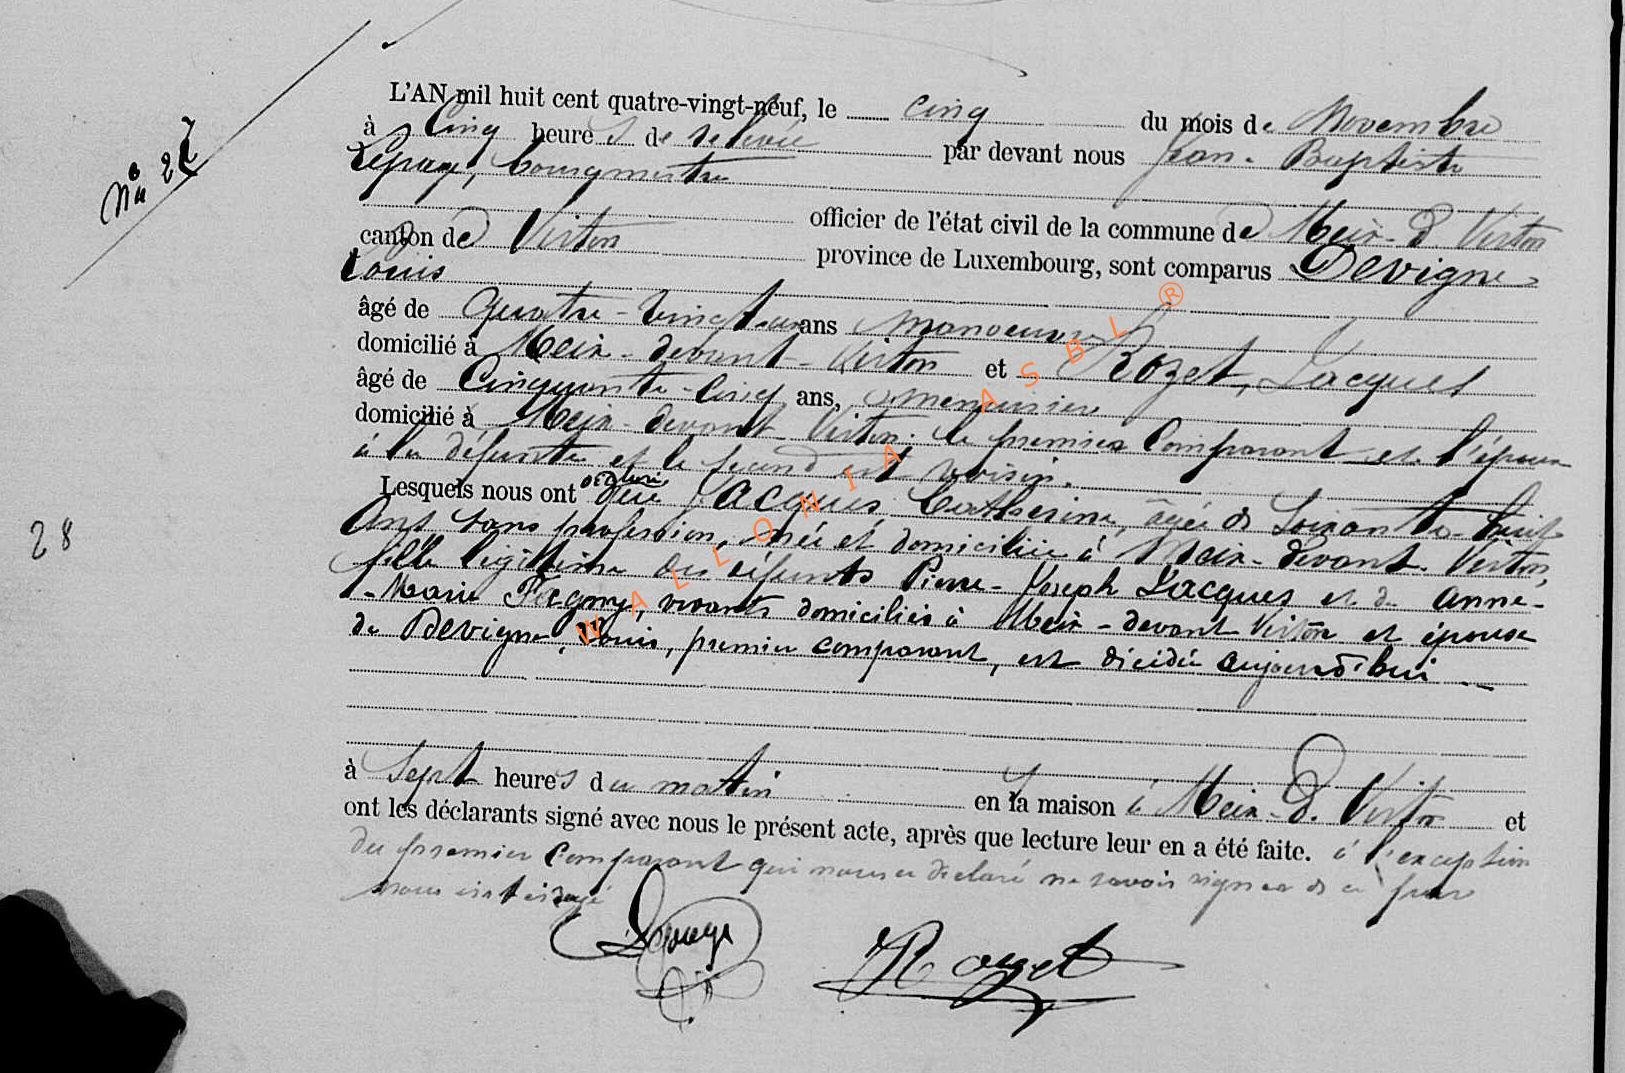 L'AN mil huit cent quatre-vingt-neuf, le cinq du mois de Novembre
à Cinq heures de relevée par devant nous Jean-Baptiste
Lepage, bourgmestre
officier de l'état civil de la commune de Meix-d Virton
canton de Virton province de Luxembourg, sont comparus Devigne
Louis
âgé de quatre-vingt-un ans manoeuvre
domicilié à Meix-devant-Virton et Rozet, Jacques
âgé de Cinquante-cinq ans, menuisier
domicilié à Meix-devant Virton. le premier Comparant est l'époux
à la défunte et le second est voisin.
Lesquels nous ont déclaré que Jacques Catherine, âgée de Soixante-huit
Ans sans profession, née et domiciliée à Meix-devant-Virton,
fille légitime des défunts Pierre-Joseph Jacques et de Anne-
-Marie Fagny, vivants domiciliés à Meix-devant Virton et épouse
de Devigne, Louis, premier comparant, est décédée aujourd'hui
à Sept heures du matin en sa maison à Meix-d. Virton et
ont les déclarants signé avec nous le présent acte, après que lecture leur en a été faite. à l'exception
du premier Comparant qui nous a déclaré ne savoir signer de ce par
nous
Lepage
Rozet
No 27
28
WALLONIA ASBL ®